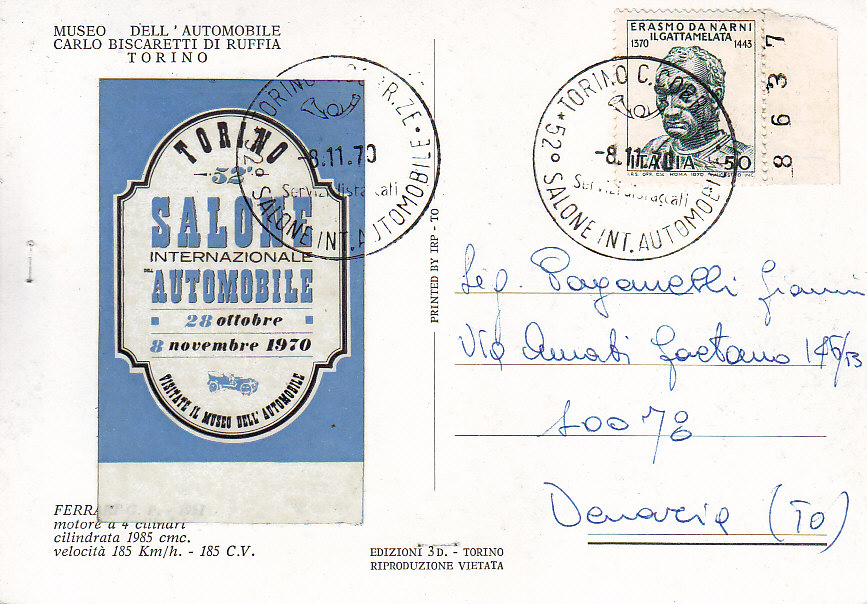 MUSEO DELL'AUTOMOBILE
CARLO BISCARETTI DI RUFFIA
TORINO
TORINO
52°
SALONE
INTERNAZIONALE
DELL'
AUTOMOBILE
28 ottobre
8 novembre 1970
VISITATE IL MUSEO DELL'AUTOMOBILE
TORINO CORR.ZE
-8.11.70
Servizi distaccati
52° SALONE INT. AUTOMOBILE
ERASMO DA NARNI
IL GATTAMELATA
1370 1443
ITALIA 50
TORINO C. CORR
-8.11.70
Servizi distaccati
52° SALONE INT. AUTOMOBILE
8637
PRINTED BY IRP - TO
Sig. Paganelli Gianni
Via Amati Gaetano 146/13
10078
Venaria (TO)
FERRA
motore a 4 cilindri
cilindrata 1985 cmc.
velocità 185 Km/h. - 185 C.V.
EDIZIONI 3D. - TORINO
RIPRODUZIONE VIETATA